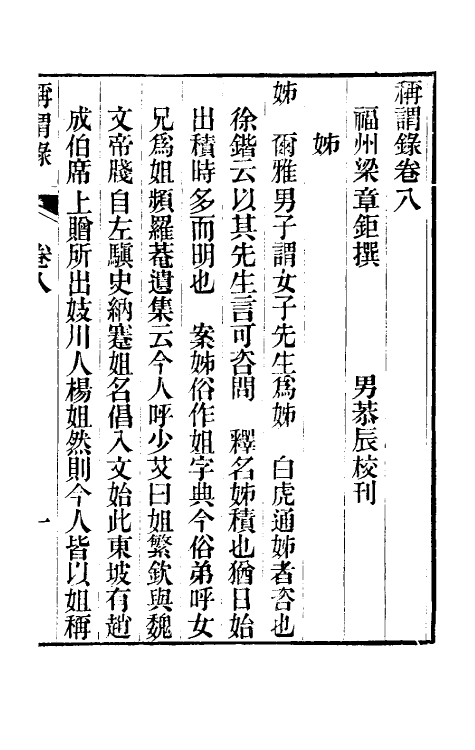 稱謂錄卷八
福州梁章鉅撰　男恭辰校刊
姊
姊　爾雅男子謂女子先生爲姊　白虎通姊者咨也
徐鍇云以其先生言可咨問　釋名姊積也猶日始
出積時多而明也　案姊俗作姐字典今俗弟呼女
兄爲姐頻羅菴遺集云今人呼少艾曰姐繁欽與魏
文帝牋自左騏史納蹇姐名倡入文始此東坡有趙
成伯席上贈所出妓川人楊姐然則今人皆以姐稱
稱謂錄　卷八　一